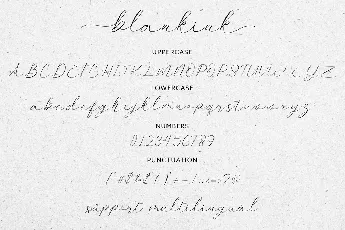 blankink
UPPERCASE
A B C D E F G H I J K L M N O P Q R S T U V W X Y Z
LOWERCASE
a b c d e f g h i j k l m n o p q r s t u v w x y z
NUMBERS
0 1 2 3 4 5 6 7 8 9
PUNCTUATION
support multilingual